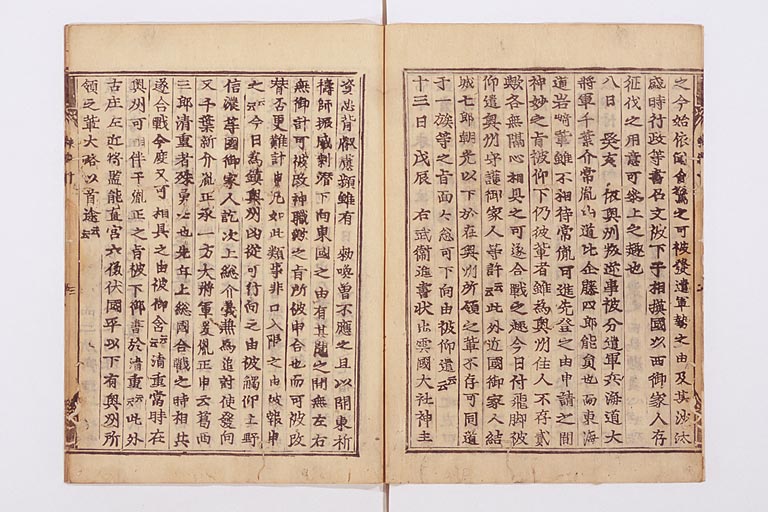 之今始依聞食驚之可被發遣軍勢之由及其沙汰
盛時行政等書召文被下于相摸國以西御家人存
征伐之用意可參上之趣也
八日 癸亥 依奥州叛逆事被分遣軍兵海道大
將軍千葉介常胤山道比企藤四郎能員也而東海
道岩崎輩雖不相待常胤可進先登之由申請之間
神妙之旨被仰下仍彼輩者雖為奥州住人不存貳
歟各無隔心相具之可遂合戰之趣今日付飛脚被
仰遣奥州守護御家人等許云云此外近國御家人結
城七郎朝光以下於在奥州所領之輩不存可同道
于一族等之旨面々急可下向由被仰遣云云
十三日 戊辰 右武衛進書状出雲國大社神主
資忠背叡慮頻雖有 勅喚曽不應之且以関東祈
禱師振威剰潜下向東國之由有其聞之間無左右
無御計可被改神職歟之旨所被申合也而可被改
替否更難計申凡如此類事非口入限之由被報申
之云云今日為鎮奥州凶徒可行向之由被觸仰上野
信濃等國御家人訖次上総介義兼為追討使發向
又千葉新介胤正承一方大將軍爰胤正申云葛西
三郎清重者殊勇士也先年上総國合戰之時相共
遂合戰今度又可相具之由被仰含云云清重當時在
奥州可相伴于胤正之旨被下御書於清重云云此外
古庄左近将監能直宮六傔仗國平以下有奥州所
領之輩大略以首途云云